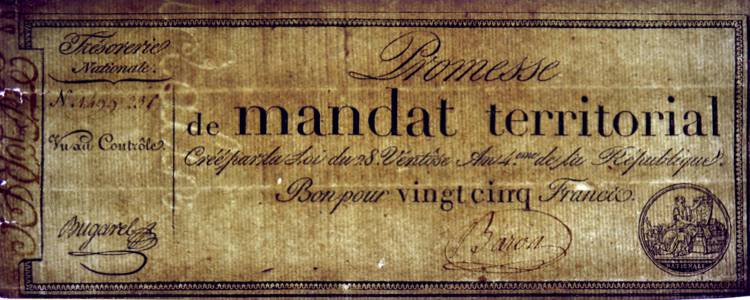 Trésorerie
Nationale.
Vu au Contrôle
Bugarel
Promesse
de mandat territorial
Créé par la Loi du 28. Ventôse An 4.eme de la République.
Bon pour vingt cinq Francs.
Baron
NATIONALE